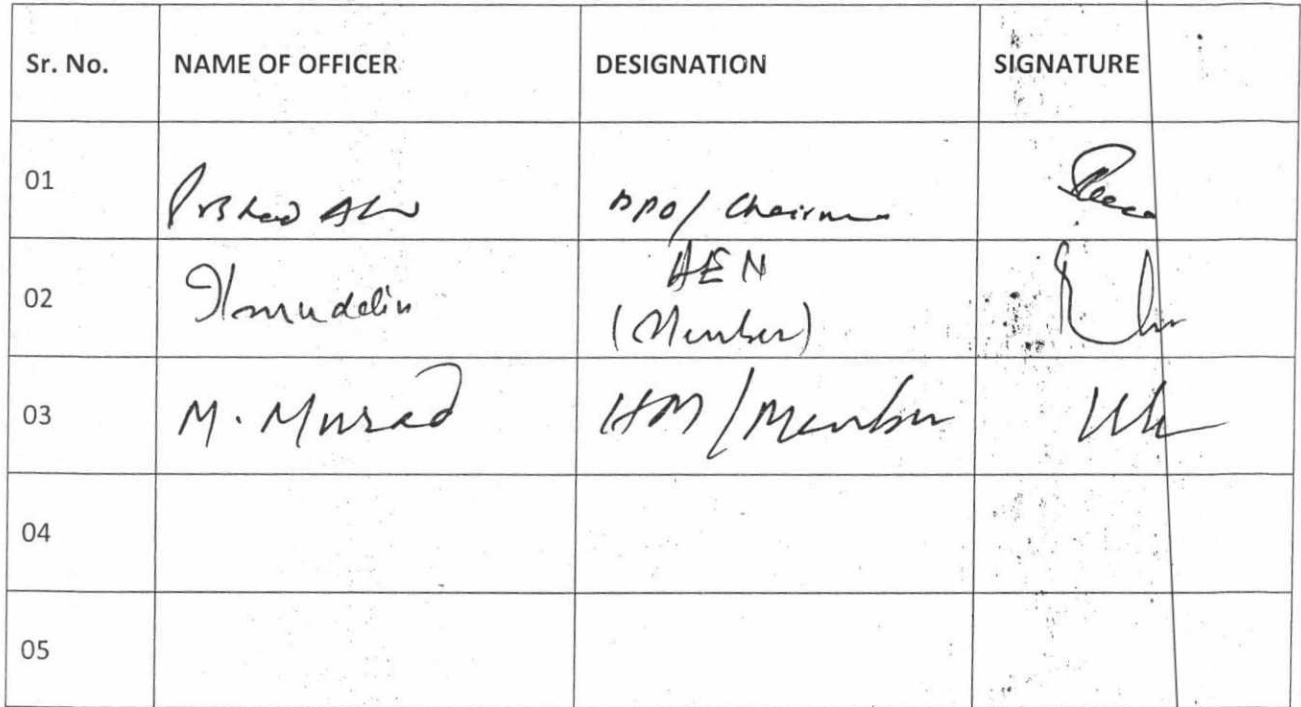 Sr. No. NAME OF OFFICER DESIGNATION SIGNATURE
01 DPO/ Chairman
02 AEN
(Member)
03 M. Murad HM/Member
04
05